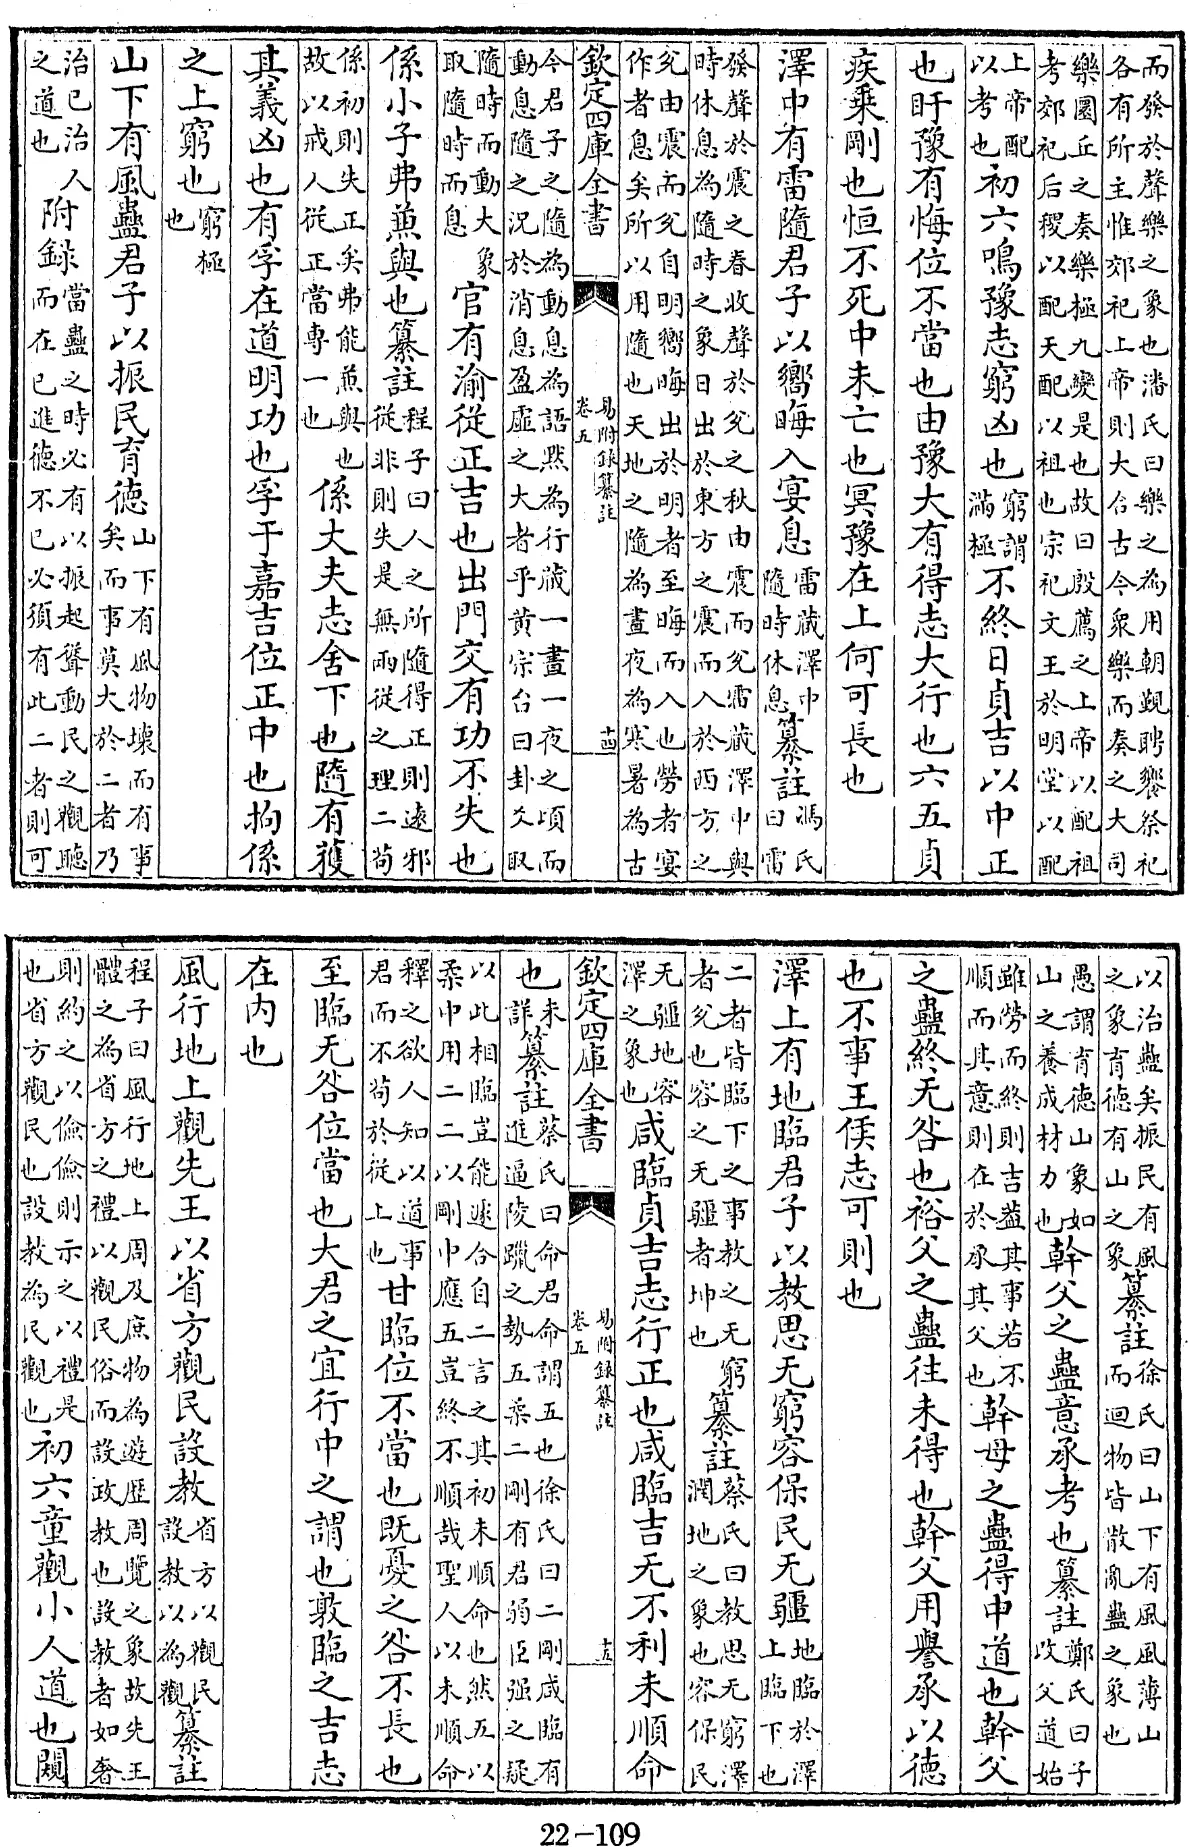 而發於聲樂之象也潘氏曰樂之為用朝覲聘饗祭祀
各有所主惟郊祀上帝則大合古今衆樂而奏之大司
樂圜丘之奏樂極九變是也故曰殷薦之上帝以配祖
考郊祀后稷以配天配以祖也宗祀文王於明堂以配
上帝配
以考也
初六鳴豫志窮凶也
窮謂
滿極
不終日貞吉以中正
也盱豫有悔位不當也由豫大有得志大行也六五貞
疾乗剛也恒不死中未亡也冥豫在上何可長也
澤中有雷隨君子以嚮晦入宴息
雷藏澤中
隨時休息
纂註
馮氏
曰雷
發聲於震之春收聲於兊之秋由震而兊雷藏澤中與
時休息為隨時之象日出於東方之震而入於西方之
兊由震而兊自明嚮晦出於明者至晦而入也勞者宴
作者息矣所以用隨也天地之隨為晝夜為寒暑為古
欽定四庫全書
易附録纂註
卷五
十四
今君子之隨為動息為語黙為行藏一晝一夜之頃而
動息隨之況於消息盈虛之大者乎黄宗台曰卦爻取
隨時而動大象
取隨時而息
官有渝從正吉也出門交有功不失也
係小子弗兼與也纂註
程子曰人之所隨得正則逺邪
從非則失是無兩從之理二苟
係初則失正矣弗能兼與也
故以戒人從正當專一也
係丈夫志舍下也隨有獲
其義凶也有孚在道明功也孚于嘉吉位正中也拘係
之上窮也
窮極
也
山下有風蠱君子以振民育德
山下有風物壞而有事
矣而事莫大於二者乃
治已治人
之道也
附録
當蠱之時必有以振起聳動民之觀聽
而在已進德不已必須有此二者則可
以治蠱矣振民有風
之象育德有山之象
纂註
徐氏曰山下有風風薄山
而迴物皆散亂蠱之象也
愚謂育德山象如
山之養成材力也
幹父之蠱意承考也纂註
鄭氏曰子
改父道始
雖勞而終則吉葢其事若不
順而其意則在於承其父也
幹母之蠱得中道也幹父
之蠱終无咎也裕父之蠱往未得也幹父用譽承以德
也不事王侯志可則也
澤上有地臨君子以教思无窮容保民无疆
地臨於澤
上臨下也
二者皆臨下之事教之无窮
者兊也容之无疆者坤也
纂註
蔡氏曰教思无窮澤
潤地之象也容保民
无疆地容
澤之象也
咸臨貞吉志行正也咸臨吉无不利未順命
欽定四庫全書
易附録纂註
卷五
十五
也
未
詳
纂註
蔡氏曰命君命謂五也徐氏曰二剛咸臨有
進逼陵躐之勢五柔二剛有君弱臣强之疑
以此相臨豈能遽合自二言之其初未順命也然五以
柔中用二二以剛中應五豈終不順哉聖人以未順命
釋之欲人知以道事
君而不苟於從上也
甘臨位不當也既憂之咎不長也
至臨无咎位當也大君之宜行中之謂也敦臨之吉志
在内也
風行地上觀先王以省方觀民設教
省方以觀民
設教以為觀
纂註
程子曰風行地上周及庶物為遊歴周覽之象故先王
體之為省方之禮以觀民俗而設政教也設教者如奢
則約之以儉儉則示之以禮是
也省方觀民也設教為民觀也
初六童觀小人道也闚
22-109